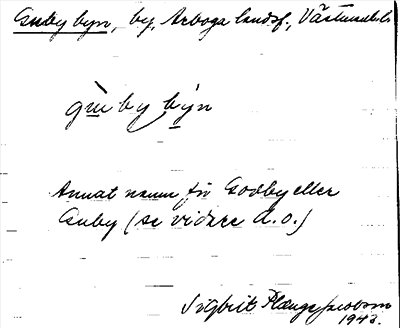 Guby byn, by, Arboga landsf., Västmanl. l.
gu̲by by̲n
Annat namn för Godby eller
Guby (se vidare d.o.)
Sigbrit Plænge Jacobson
1943.